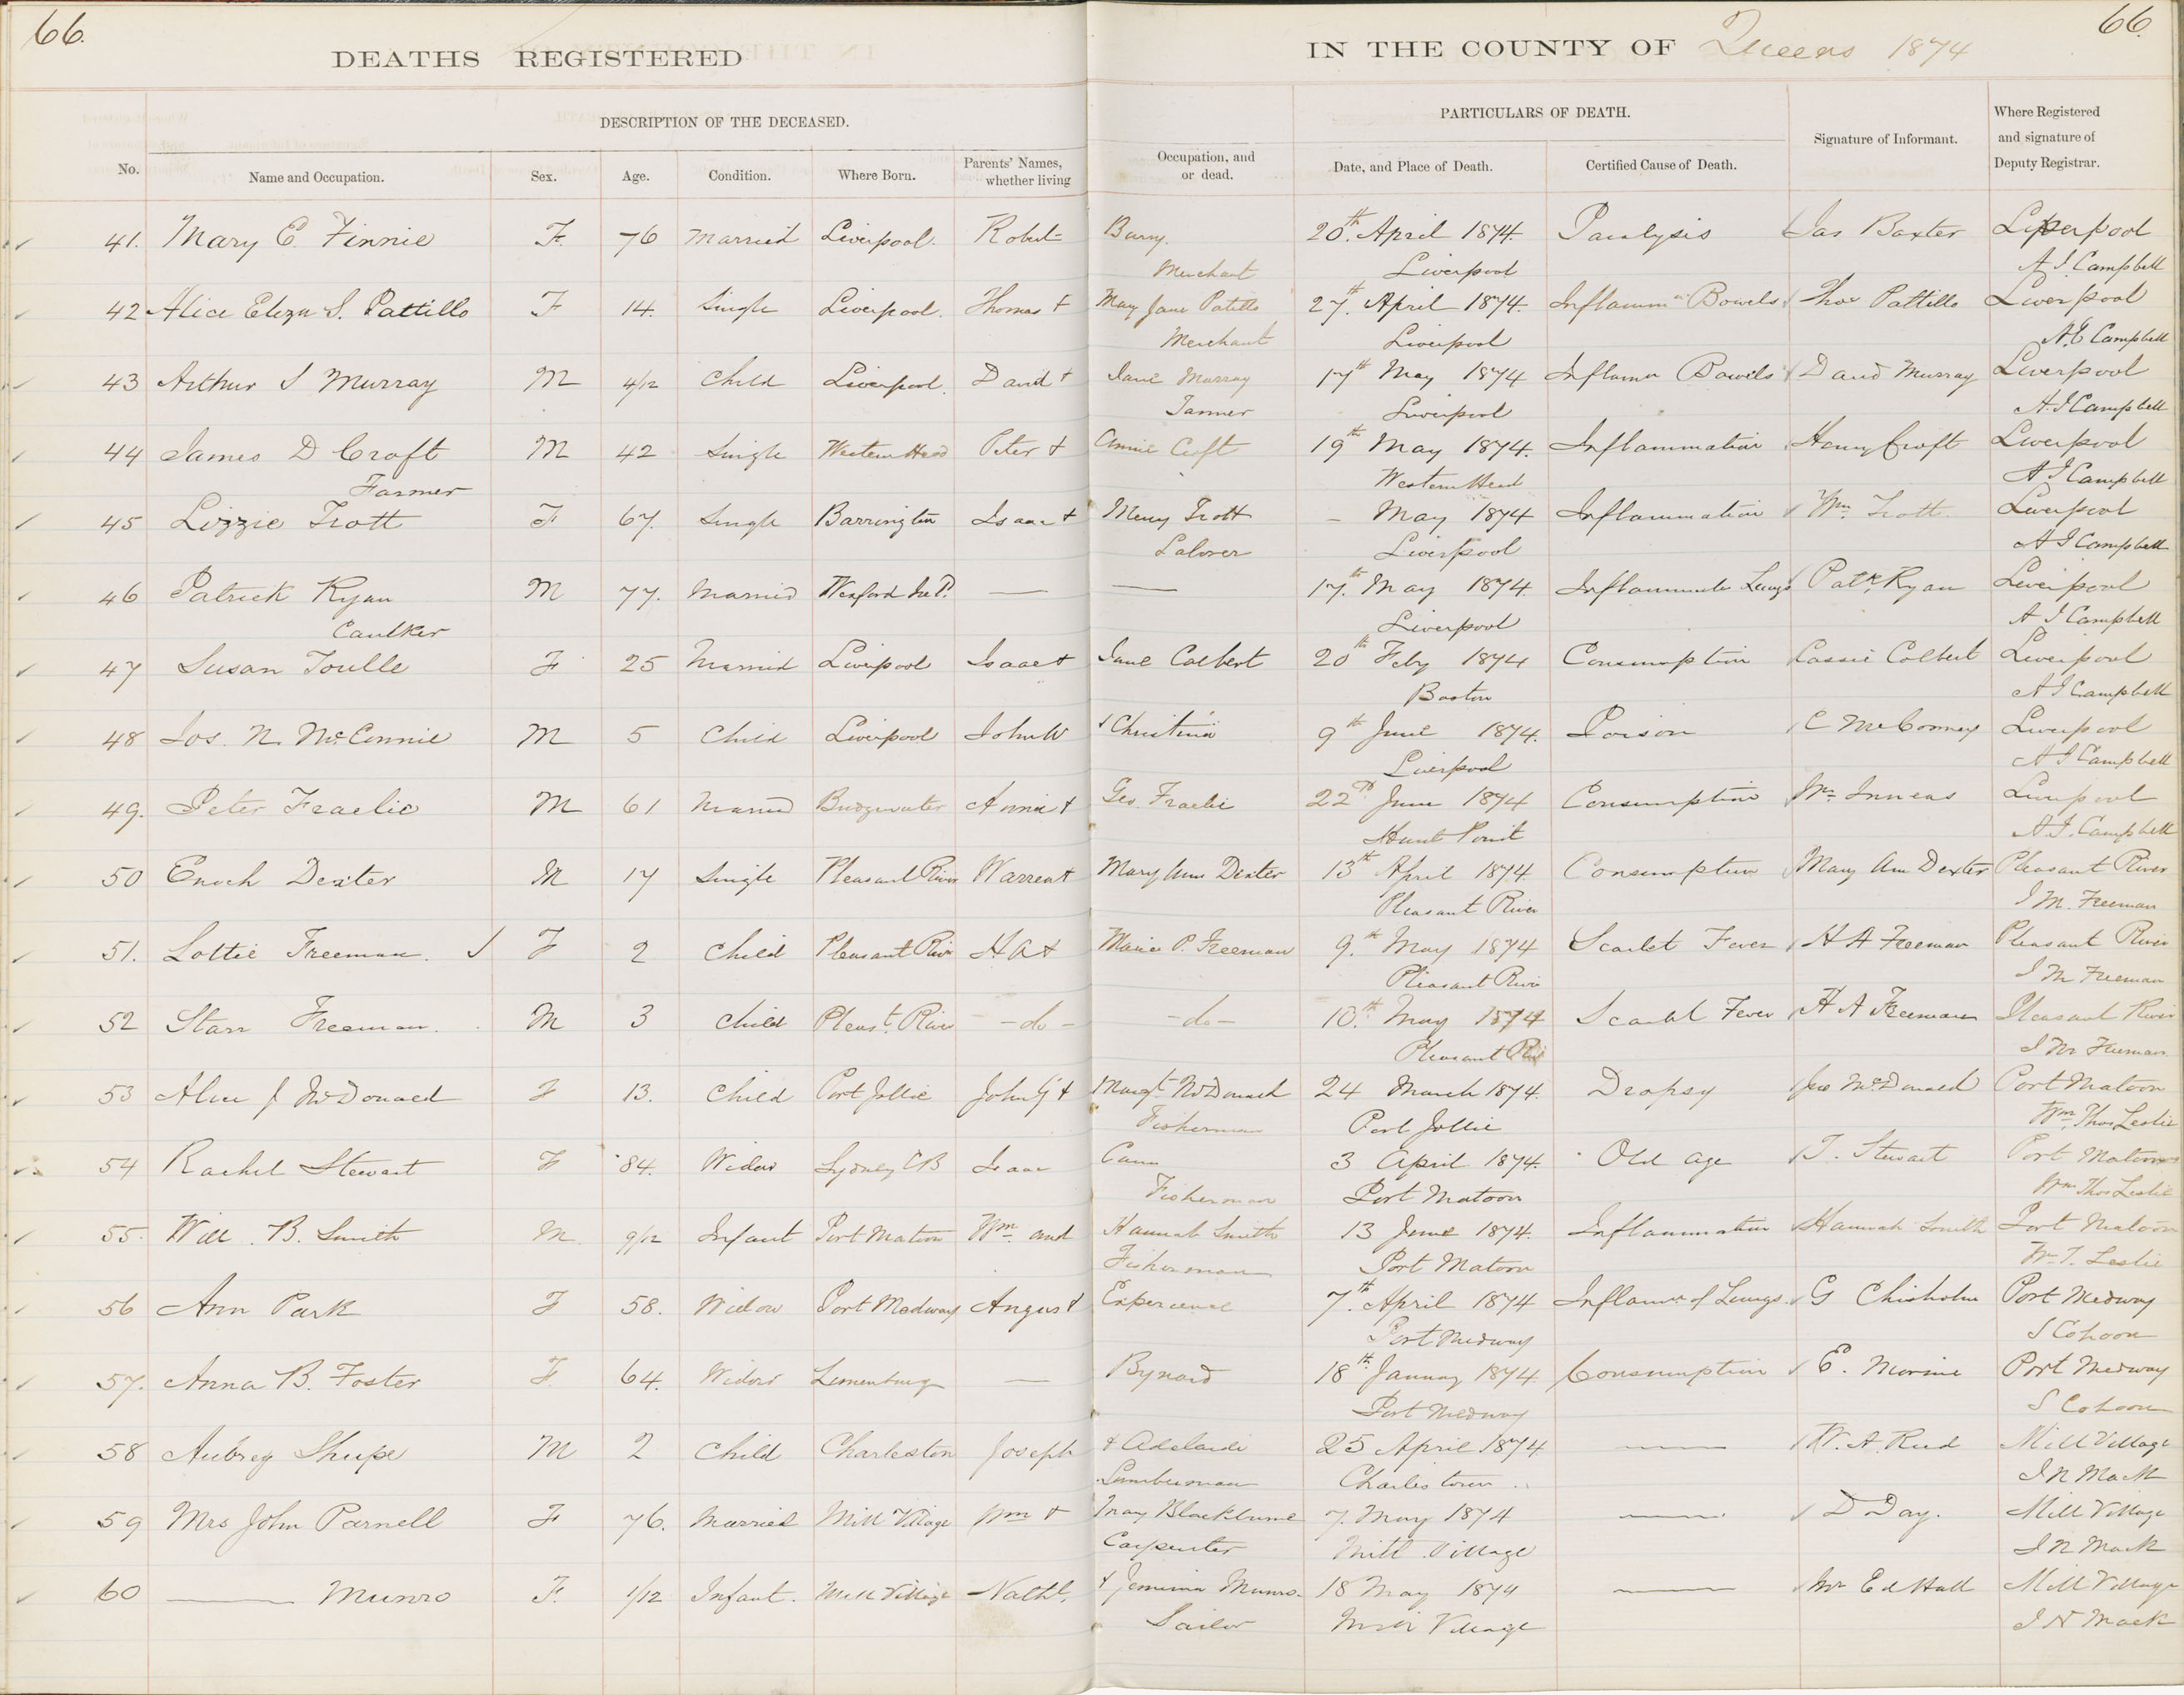 66.
66
DEATHS REGISTERED IN THE COUNTY OF Queens 1874
DESCRIPTION OF THE DECEASED. PARTICULARS OF DEATH.
No. Name and Occupation. Sex. Age. Condition. Where Born. Parents' Names, whether living Occupation, and or dead. Date, and Place of Death. Certified Cause of Death. Signature of Informant. Where Registered and signature of Deputy Registrar.
41. Mary E. Finnie F. 76 Married Liverpool. Robert Barry. 20th. April 1874. Paralysis Jas Baxter Liverpool
Merchant Liverpool A. J. Campbell
42 Alice Eliza S. Pattillo F 14. Single Liverpool. Thomas + Mary Jane Patillo 27th. April 1874. Inflammn Bowels Thos Pattillo Liverpool
Merchant Liverpool A. J. Campbell
43 Arthur S Murray M 4/12 Child Liverpool. David + Jane Murray 17th May 1874 Inflamn Bowels David Murray Liverpool
Tanner Liverpool A. J. Campbell
44 James D Croft M 42 Single Western Head Peter + Annie Croft 19th May 1874. Inflammation Henry Croft Liverpool
Farmer Western Head A J Campbell
45 Lizzie Trott F 67. Single Barrington Isaac + Mercy Trott – May 1874 Inflammation Wm. Trott. Liverpool
Laborer Liverpool A J Campbell
46 Patrick Ryan M 77. Married Wexford Ireld. — — 17th. May 1874. Inflammatn Lungs Patk. Ryan Liverpool
Caulker Liverpool A J Campbell
47 Susan Toulle F 25 Married Liverpool Isaac + Jane Colbert 20th Feby 1874 Consumption Cassie Colbert Liverpool
Boston A J Campbell
48 Jos. N. McConnie M 5 Child Liverpool John W + Christina 9th June 1874. Poison C McConney Liverpool
Liverpool A J Campbell
49. Peter Fraelic M 61 Married Bridgewater Annie + Geo. Fraelic 22nd June 1874 Consumption Mr. Inneas Liverpool
Hunt Point A. J. Campbell
50 Enoch Dexter M 17 Single Pleasant River Warren + Mary Ann Dexter 13th April 1874 Consumption Mary Ann Dexter Pleasant River
Pleasant River J M. Freeman
51. Lottie Freeman. F 2 Child Pleasant River H A + Maria P. Freeman 9.th May 1874 Scarlet Fever H A Freeman Pleasant River
Pleasant River J M Freeman
52 Starr Freeman. M 3 Child Pleast. River – do – – do – 10.th May 1874 Scarlet Fever H A Freeman Pleasant River
Pleasant Riv J M Freeman
53 Alice J McDonald F 13. Child Port Jollie John G + Margt. McDonald 24 March 1874. Dropsy Jno McDonald Port Matoon
Fisherman Port Jollie Wm. Thos Leslie
54 Rachel Stewart F 84. Widow Sydney CB Isaac 3 April 1874. Old Age T. Stewart Port Matoon
Fisherman Port Matoon Wm Thos Leslie
55. Will. B. Smith M. 9/12 Infant Port Matoon Wm. and Hannah Smith 13 June 1874. Inflammation Hannah Smith Port Matoon
Fisherman Port Matoon Wm T. Leslie
56 Ann Park F 58. Widow Port Medway Angus + Experience 7th. April 1874 Inflamn. of Lungs. G Chisholm Port Medway
Port Medway S Cohoon
57. Anna B. Foster F. 64. Widow Lunenburg — Bynard 18th. January 1874. Consumption E. Morine Port Medway
Port Medway S Cohoon
58 Aubrey Shupe M 2 Child Charleston Joseph + Adelaide 25 April 1874 — W. A. Reid Mill Village
Lumberman Charlestown J N Mack
59 Mrs John Parnell F 76. Married Mill Village Wm + Mary Blackburne 7. May 1874 — D Day. Mill Village
Carpenter Mill Village J N Mack
60 — Munro F. 1/12 Infant. Mill Village Nathl. + Jemima Munro. 18 May 1874 — Mr Ed Hall Mill Village
Sailor Mill Village J N Mack